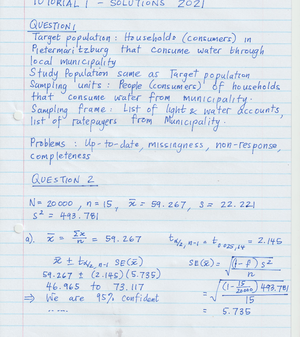 TUTORIAL 1 - SOLUTIONS 2021
QUESTION 1
Target population : Households (consumers) in
Pietermaritzburg that consume water through
local municipality
Study Population same as Target population
Sampling units : People (consumers) of households
that consume water from Municipality.
Sampling frame : List of light & water accounts,
list of ratepayers from Municipality.
Problems : Up-to-date, missingness, non-response,
completeness
QUESTION 2
N = 20000, n = 15, x̄ = 59.267, s = 22.221
s² = 493.781
a). x̄ = Σx/n = 59.267 t α/2, n-1 = t 0.025,14 = 2.145
x̄ ± t α/2, n-1 SE(x̄) SE(x̄) = √((1-f) s²/n)
59.267 ± (2.145)(5.735) = √((1 - 15/20000) 493.781/15)
46.965 to 73.117
⇒ We are 95% confident = 5.735
......